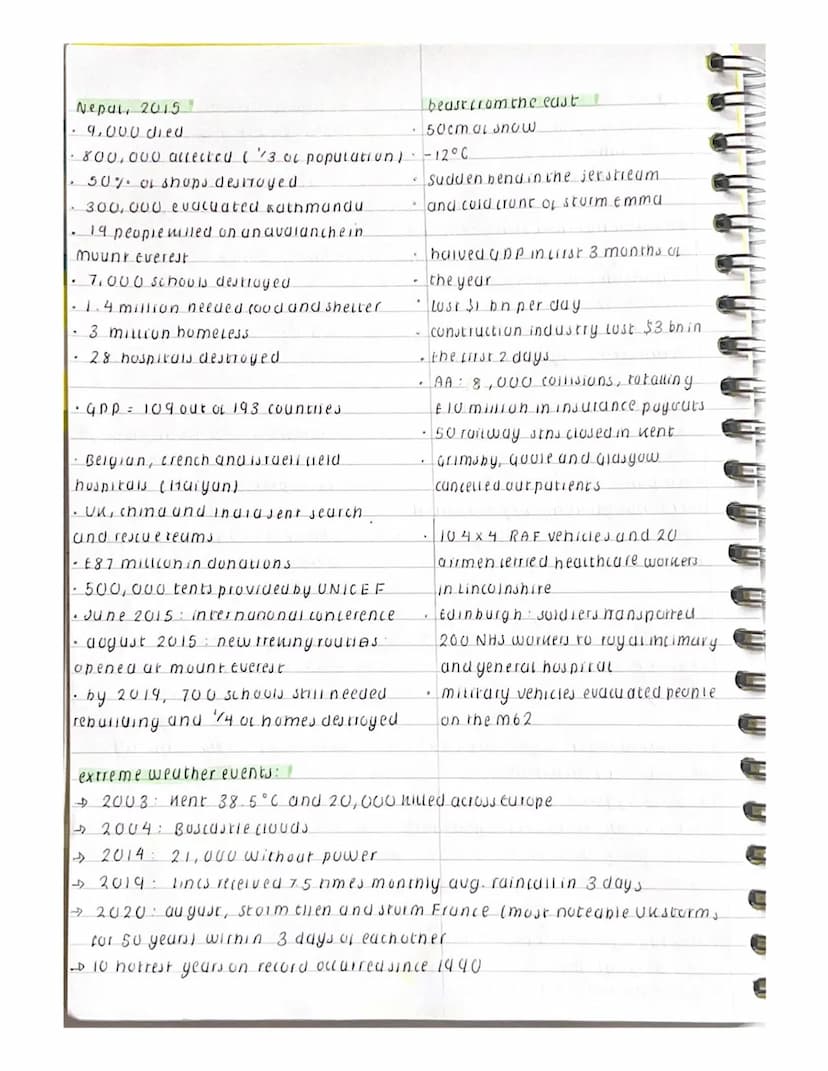 Nepal, 2015
· 9,000 died
· 800,000 affected (1/3 of population)
· 50% of shops destroyed
· 300,000 evacuated Kathmandu
· 19 people killed on an avalanche in
mount Everest
· 7,000 schools destroyed
· 1.4 million needed food and shelter
· 3 million homeless
· 28 hospitals destroyed
· GDP = 109 out of 193 countries
· Belgian, french and israeli field
hospitals (Haiyan)
· UK, china and India sent search
and rescue teams
· £87 million in donations
· 500,000 tents provided by UNICEF
· June 2015: international conference
· august 2015: new treking routies
opened at mount Everest
· by 2019, 700 schools still needed
rebuilding and 1/4 of homes destroyed
beast from the east
· 50cm of snow
· -12°C
· sudden bend in the jetstream
· and cold front of storm emma
· halved GDP in first 3 months of
· the year
· lost $1 bn per day
· construction industry lost $3 bn in
· the first 2 days
· AA: 8,000 collisions, totalling
£10 million in insurance payouts
· 50 railway stns closed in Kent
· Grimsby, Goole and Glasgow
cancelled outpatients
· 10 4x4 RAF vehicles and 20
airmen ferried healthcare workers
in Lincolnshire
· Edinburgh: soldiers transported
200 NHS workers to royal infirmary
and general hospital
· military vehicles evacuated people
on the M62
extreme weather events:
→ 2003: Kent 38.5°C and 20,000 killed across Europe
→ 2004: Boscastle floods
→ 2014: 21,000 without power
→ 2019: Lincs received 7.5 times monthly avg. rainfall in 3 days
→ 2020: august, storm Ellen and storm France (most noteable UK storms
for 50 years) within 3 days of eachother
→ 10 hottest years on record occurred since 1990